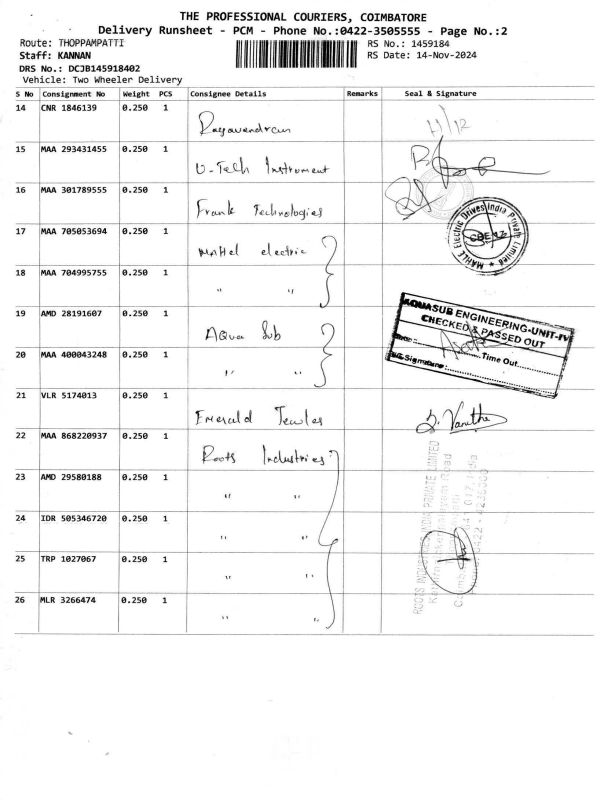 THE PROFESSIONAL COURIERS, COIMBATORE
Delivery Runsheet - PCM - Phone No.:0422-3505555 - Page No.:2
Route: THOPPAMPATTI RS No.: 1459184
Staff: KANNAN RS Date: 14-Nov-2024
DRS No.: DCJB145918402
Vehicle: Two Wheeler Delivery
S No Consignment No Weight PCS Consignee Details Remarks Seal & Signature
14 CNR 1846139 0.250 1
Ragavendran
15 MAA 293431455 0.250 1
U-Tech Instrument
16 MAA 301789555 0.250 1
Frank Technologies
17 MAA 705053694 0.250 1
Mahel electric
MAHLE Electric Drives India Private Limited
18 MAA 704995755 0.250 1
" "
19 AMD 28191607 0.250 1
Aqua Sub
AQUASUB ENGINEERING-UNIT-IV
CHECKED & PASSED OUT
Time Out
Signature
20 MAA 400043248 0.250 1
" "
21 VLR 5174013 0.250 1
Emerald Jewles
22 MAA 868220937 0.250 1
Roots Industries
ROOTS INDUSTRIES INDIA PRIVATE LIMITED
23 AMD 29580188 0.250 1
" "
24 IDR 505346720 0.250 1
" "
25 TRP 1027067 0.250 1
" "
26 MLR 3266474 0.250 1
" "